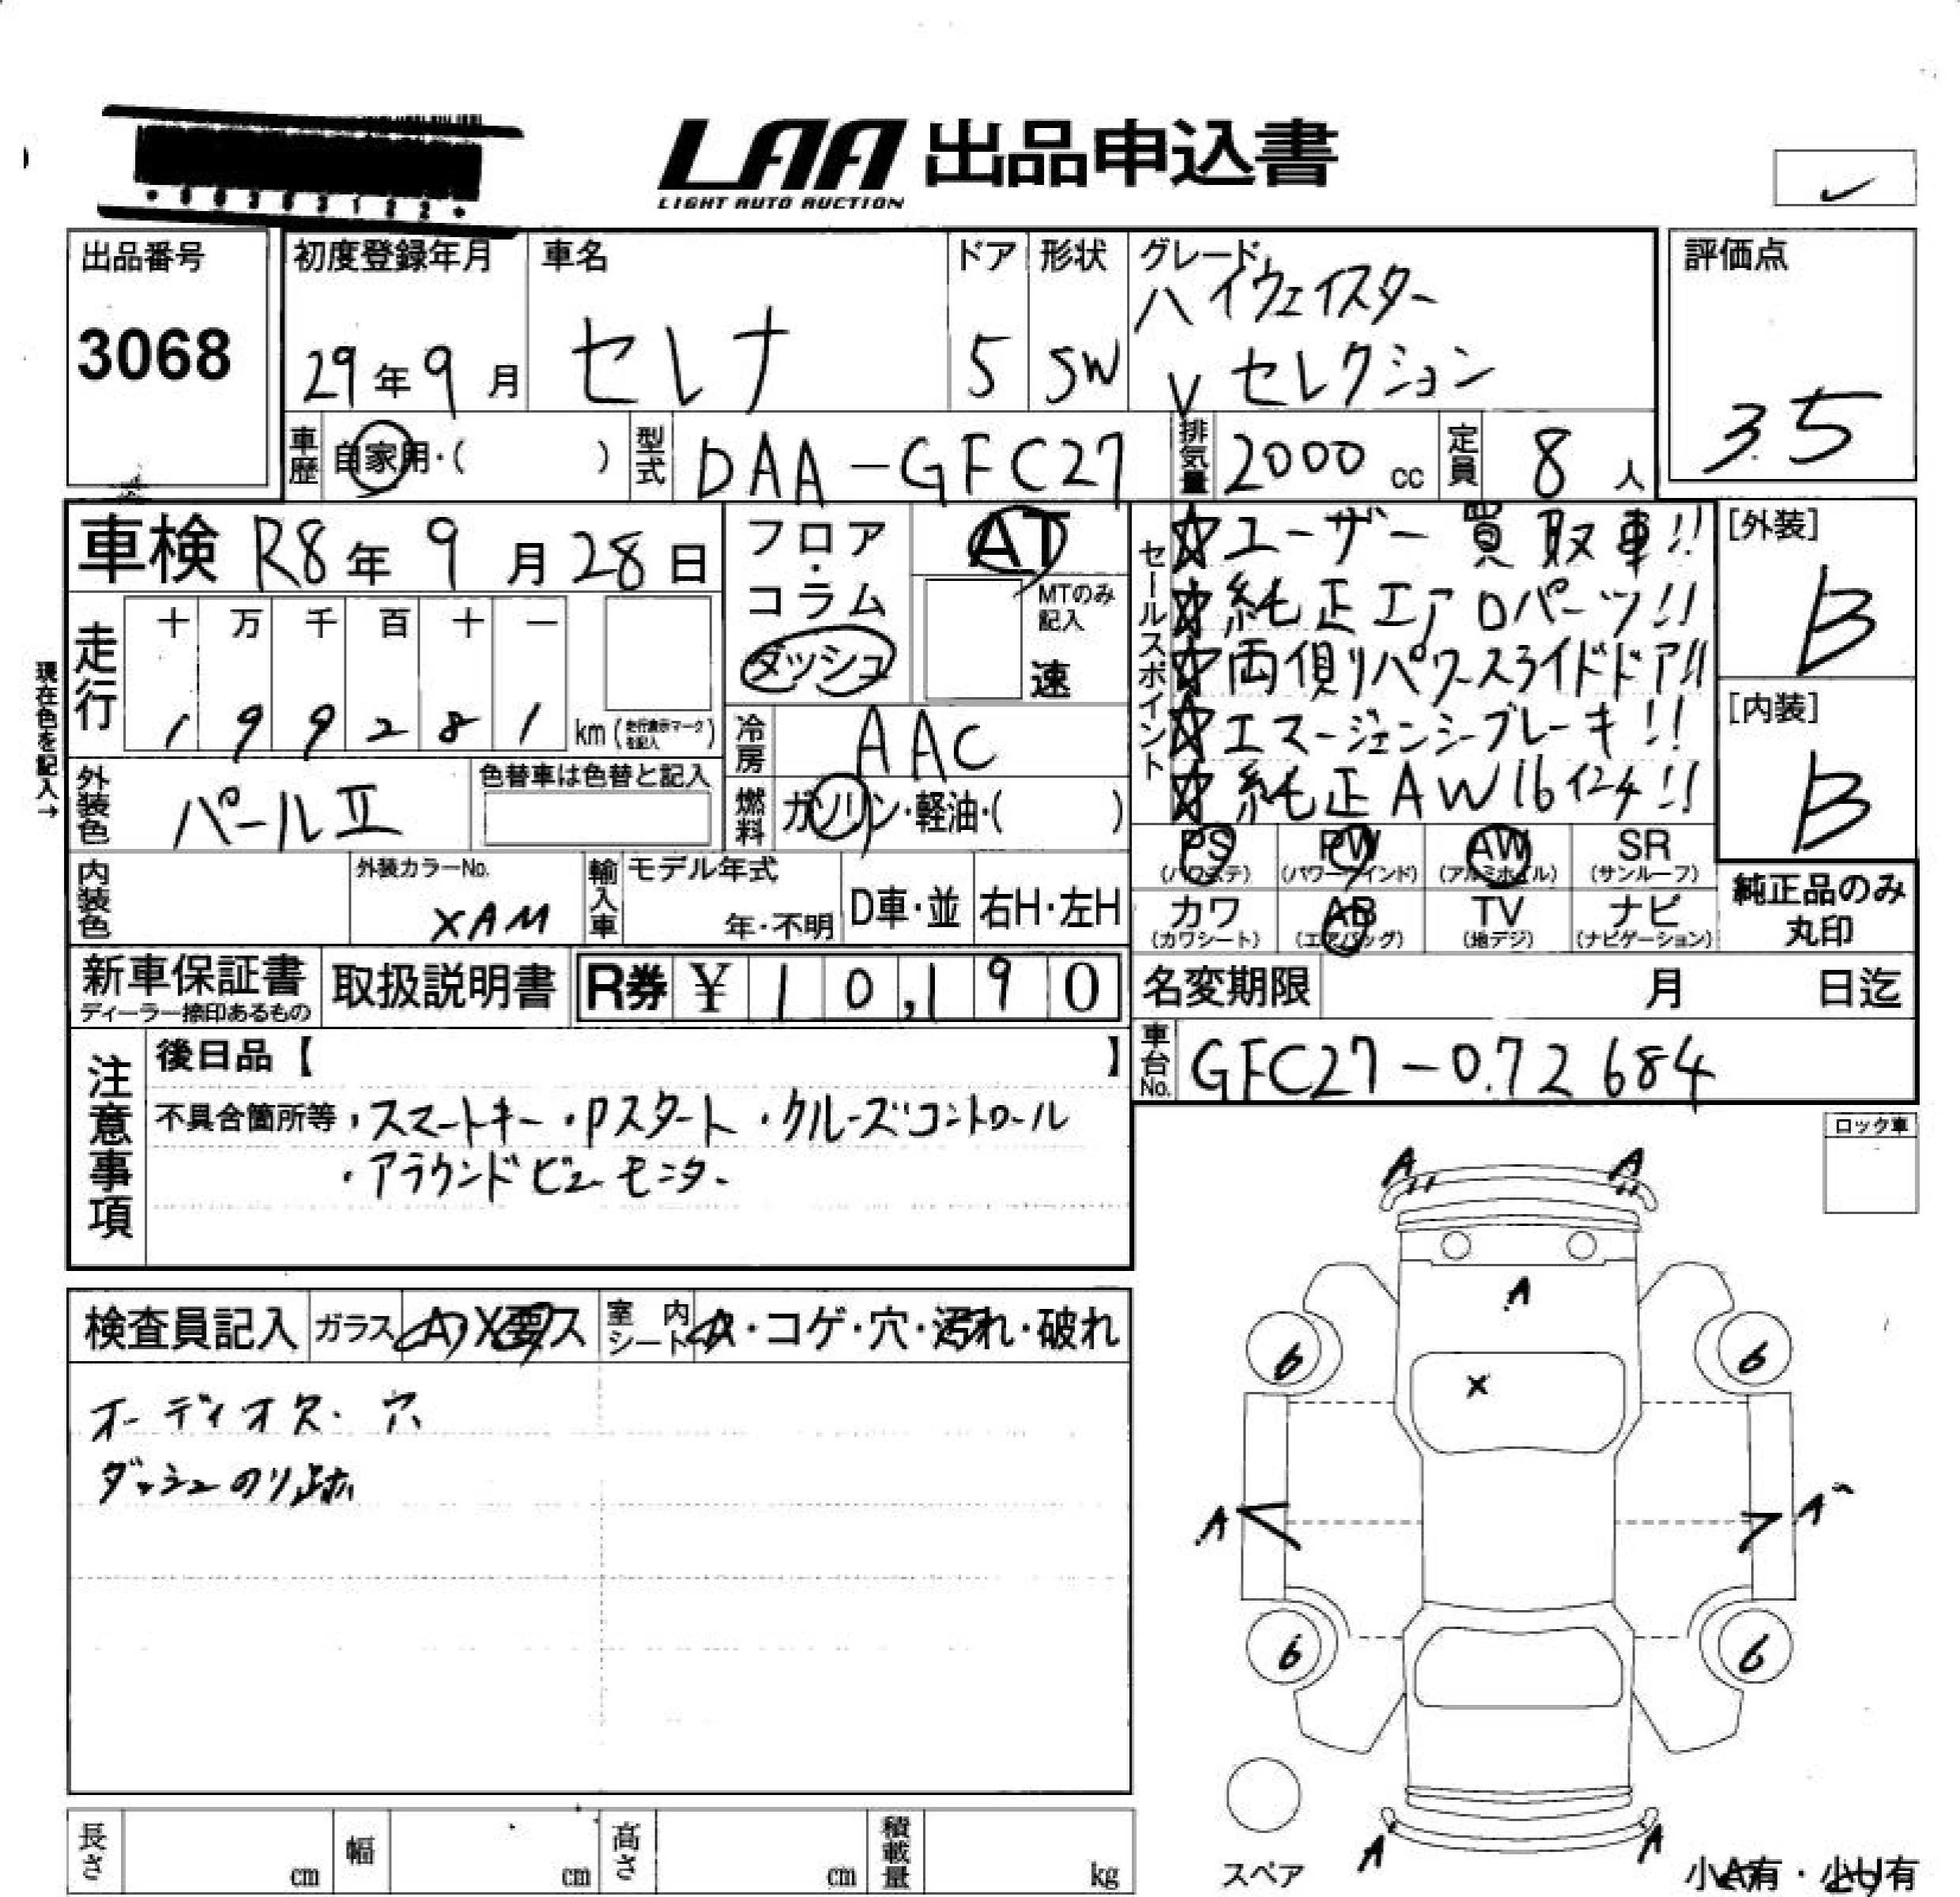 LAA 出品申込書
LIGHT AUTO AUCTION
出品番号
3068
初度登録年月
29年9月
車名
セレナ
ドア
5
形状
SW
グレード
ハイウェイスター
Vセレクション
評価点
3.5
車歴 自家用・( )
型式 DAA-GFC27
排気量 2000 cc
定員 8人
車検 R8年9月28日
フロア・コラム
ダッシュ
AT
MTのみ記入
速
セールスポイント
☆ユーザー買取車!!
☆純正エアロパーツ!!
☆両側パワースライドドア!!
☆エマージェンシーブレーキ!!
☆純正AW16インチ!!
[外装]
B
[内装]
B
現在色を記入→
走行
十 万 千 百 十 一
1 9 9 2 8 1 km (走行表示マークを記入)
冷房 AAC
外装色 パールⅡ
色替車は色替と記入
燃料 ガソリン・軽油・( )
PS (パワステ) PW (パワーウインド) AW (アルミホイル) SR (サンルーフ)
カワ (カワシート) AB (エアバッグ) TV (地デジ) ナビ (ナビゲーション)
純正品のみ丸印
内装色
外装カラーNo.
XAM
輸入車 モデル年式 年・不明 D車・並 右H・左H
新車保証書
ディーラー捺印あるもの
取扱説明書
R券 ¥ 10,190
名変期限 月 日迄
車台No. GFC27-072684
注意事項
後日品【 】
不具合箇所等 ・スマートキー・Pスタート・クルーズコントロール
・アラウンドビューモニター
ロック車
検査員記入 ガラス A X 要ス
室内シート ・コゲ・穴・汚れ・破れ
オーディオ欠・穴
ダッシュのり跡
A A
A
6 6
X
A A
6 6
A A
スペア
小A有・小U有
長さ cm 幅 cm 高さ cm 積載量 kg